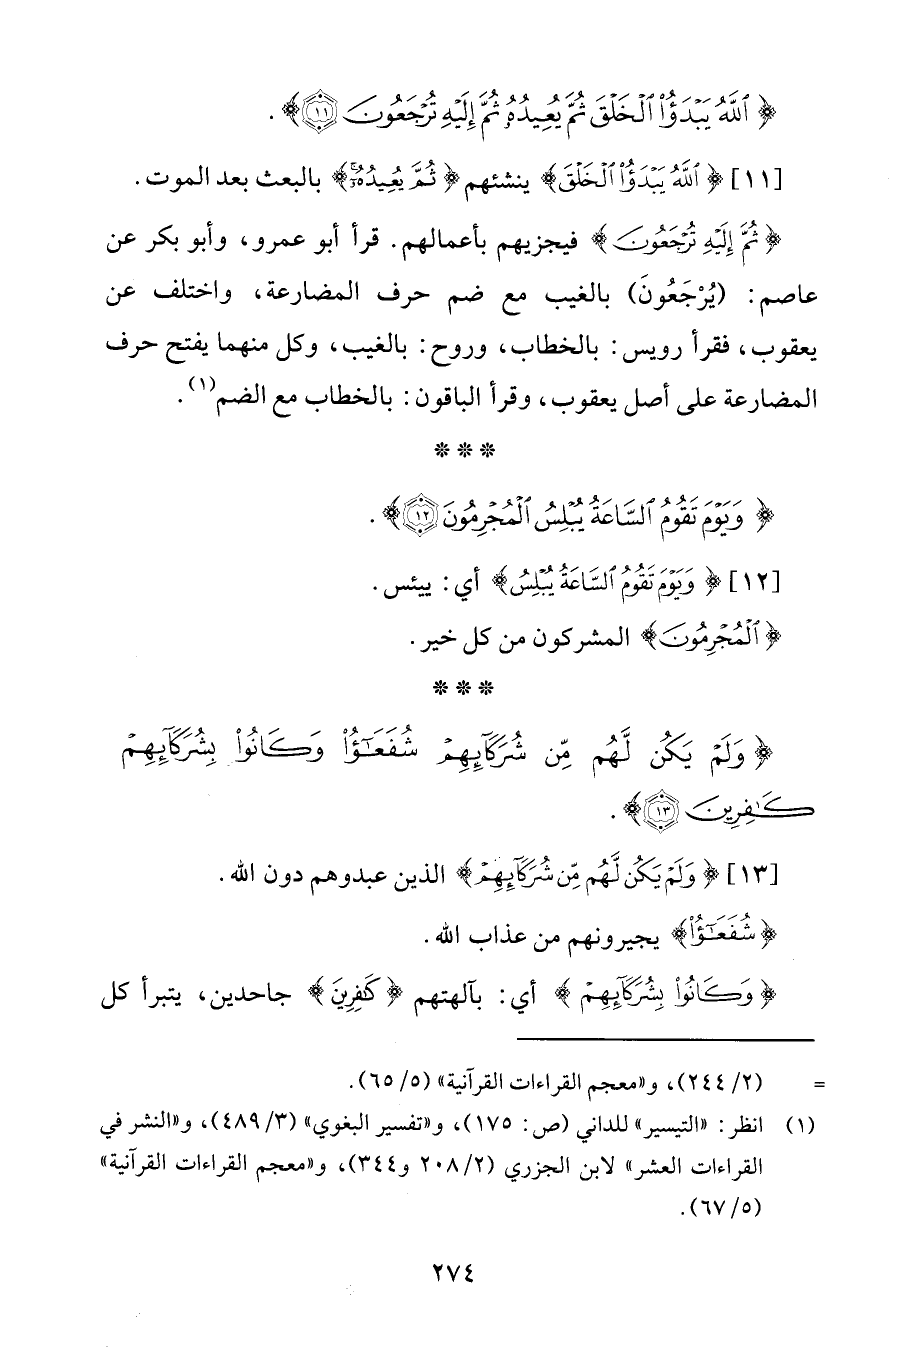 ﴿ اللَّهُ يَبْدَؤُا الْخَلْقَ ثُمَّ يُعِيدُهُ ثُمَّ إِلَيْهِ تُرْجَعُونَ ١١ ﴾ .
[١١] ﴿ اللَّهُ يَبْدَؤُا الْخَلْقَ ﴾ ينشئهم ﴿ ثُمَّ يُعِيدُهُ ﴾ بالبعث بعد الموت .
﴿ ثُمَّ إِلَيْهِ تُرْجَعُونَ ﴾ فيجزيهم بأعمالهم . قرأ أبو عمرو، وأبو بكر عن
عاصم : (يُرْجَعُونَ) بالغيب مع ضم حرف المضارعة، واختلف عن
يعقوب، فقرأ رويس : بالخطاب، وروح : بالغيب، وكل منهما يفتح حرف
المضارعة على أصل يعقوب، وقرأ الباقون : بالخطاب مع الضم(١) .
* * *
﴿ وَيَوْمَ تَقُومُ السَّاعَةُ يُبْلِسُ الْمُجْرِمُونَ ١٢ ﴾ .
[١٢] ﴿ وَيَوْمَ تَقُومُ السَّاعَةُ يُبْلِسُ ﴾ أي : ييئس .
﴿ الْمُجْرِمُونَ ﴾ المشركون من كل خير .
* * *
﴿ وَلَمْ يَكُن لَّهُم مِّن شُرَكَآئِهِمْ شُفَعَٰٓؤُا وَكَانُوا بِشُرَكَآئِهِمْ
كَافِرِينَ ١٣ ﴾ .
[١٣] ﴿ وَلَمْ يَكُن لَّهُم مِّن شُرَكَآئِهِمْ ﴾ الذين عبدوهم دون الله .
﴿ شُفَعَٰٓؤُا ﴾ يجيرونهم من عذاب الله .
﴿ وَكَانُوا بِشُرَكَآئِهِمْ ﴾ أي : بآلهتهم ﴿ كَٰفِرِينَ ﴾ جاحدين، يتبرأ كل
= (٢/ ٢٤٤)، و«معجم القراءات القرآنية» (٥/ ٦٥).
(١) انظر : «التيسير» للداني (ص : ١٧٥)، و«تفسير البغوي» (٣/ ٤٨٩)، و«النشر في
القراءات العشر» لابن الجزري (٢/ ٢٠٨ و٣٤٤)، و«معجم القراءات القرآنية»
(٥/ ٦٧).
٢٧٤